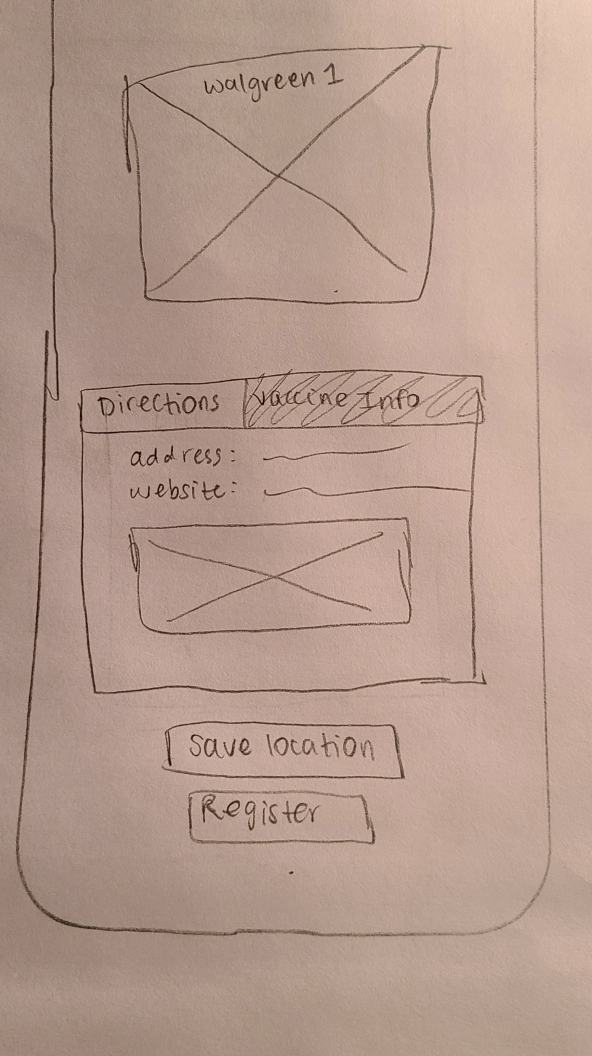 walgreen 1
Directions Vaccine Info
address:
website:
Save location
Register